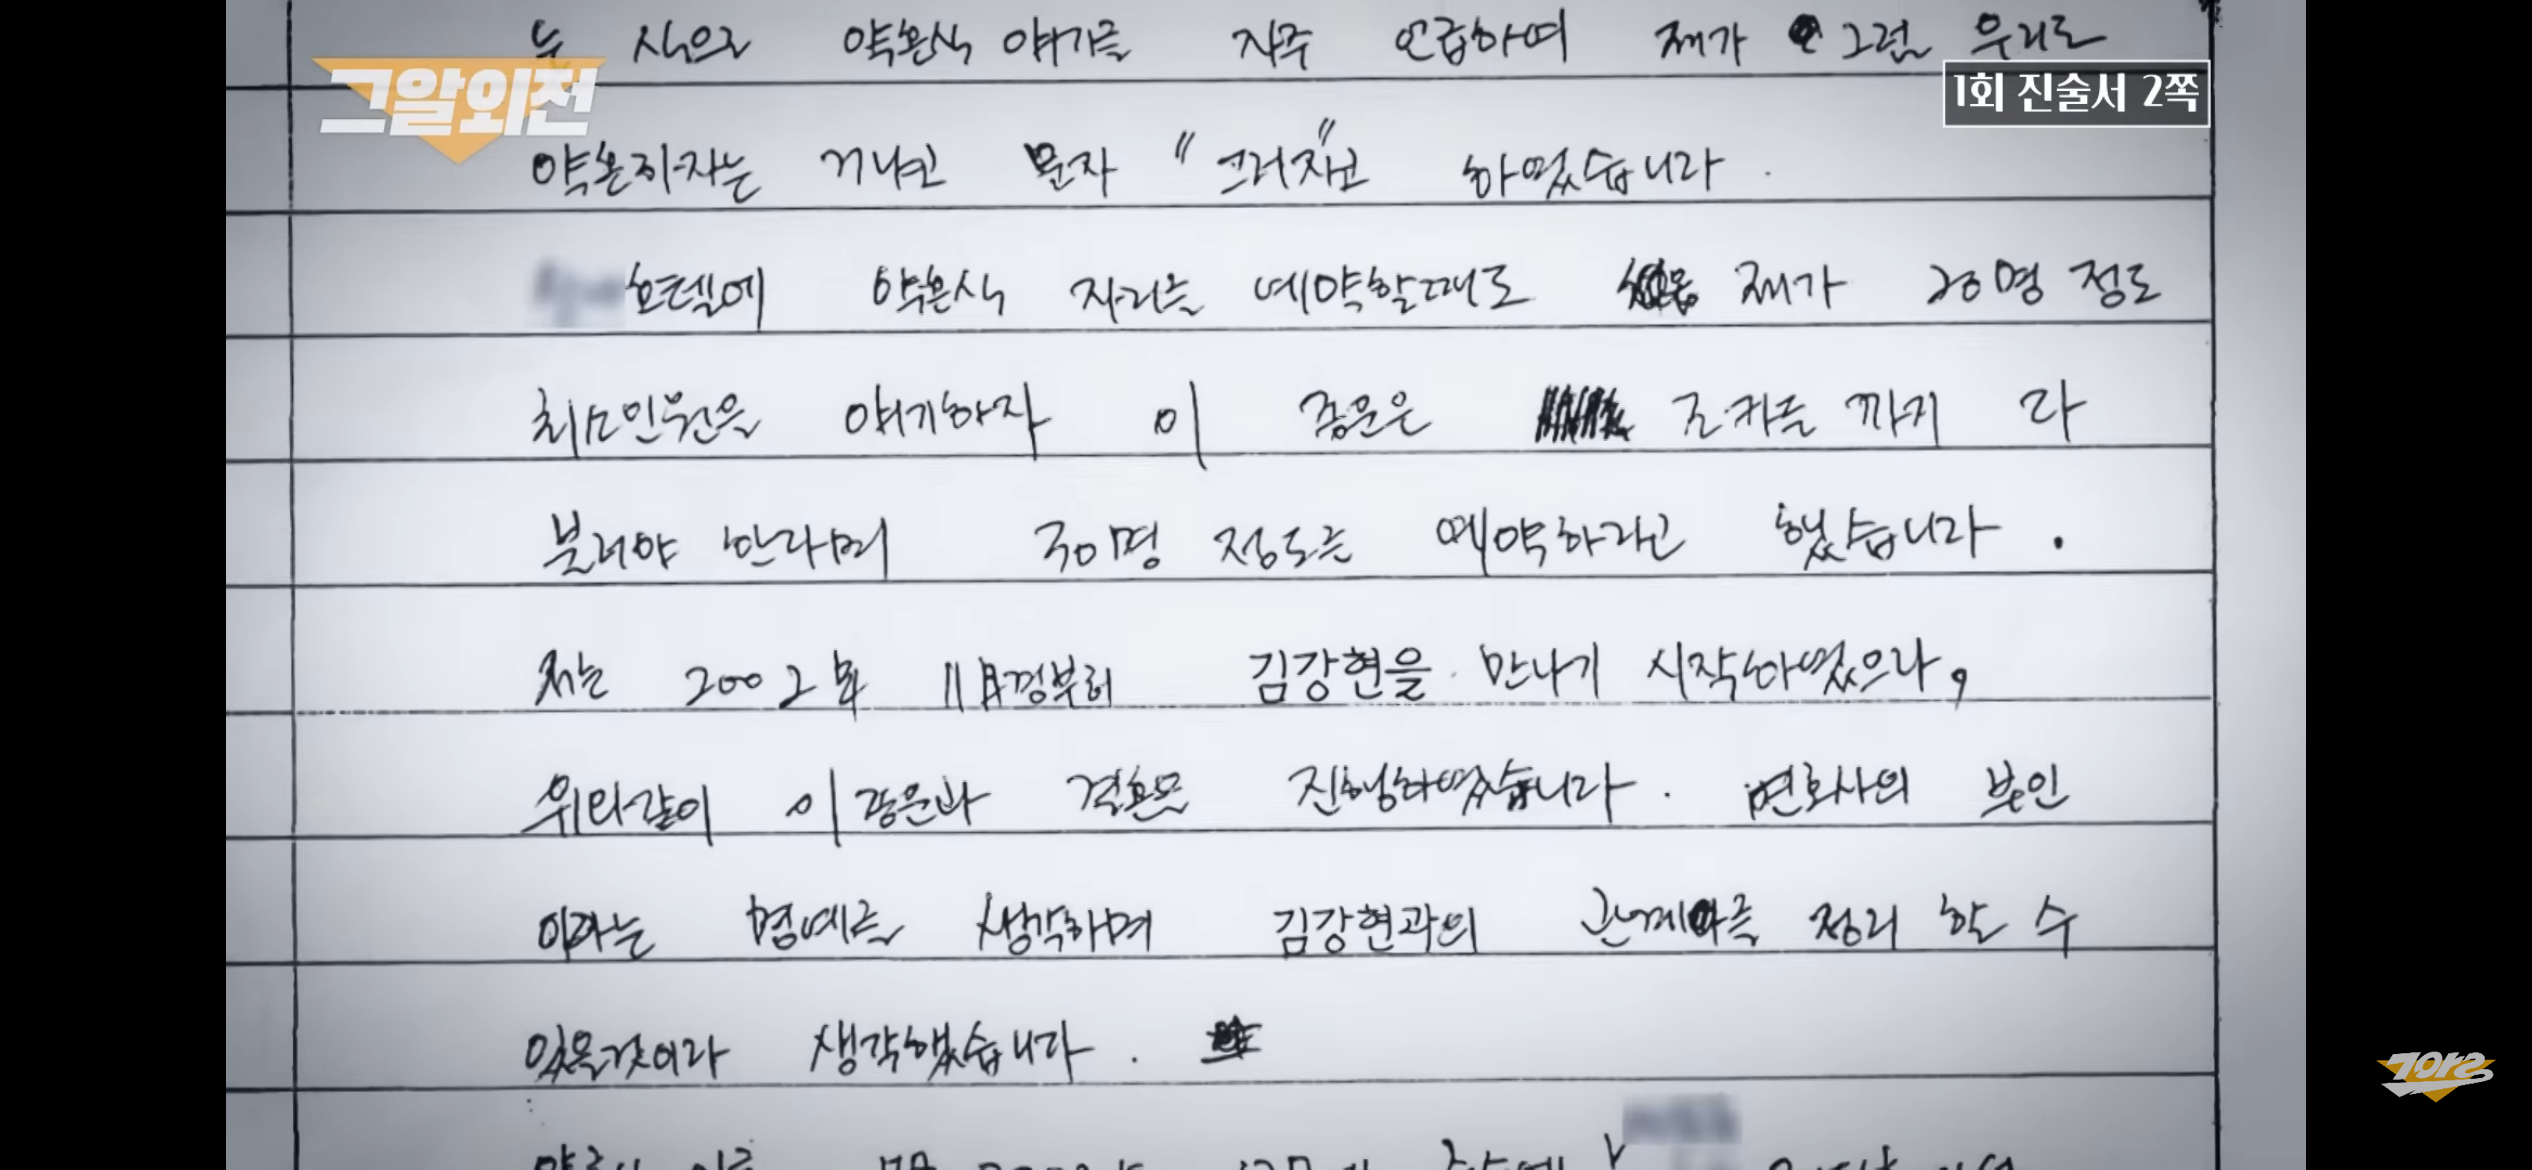 는 식으로 약혼식 얘기를 자주 언급하며 제가 그럼 우리도
그알외전
1회 진술서 2쪽
약혼하자는 거냐고 묻자 "그러자"고 하였습니다.
호텔에 약혼식 자리를 예약할때도 제가 20명 정도
최소인원을 얘기하자 이 종운은 조카들 까지 다
불러야 한다며 30명 정도를 예약하라고 했습니다.
저는 2002年 11月경부터 김강현을 만나기 시작하였으나,
위와같이 이종운과 결혼을 진행하였습니다. 변호사의 부인
이라는 명예를 생각하며 김강현과의 관계를 정리 할 수
있을것이라 생각했습니다.
그알